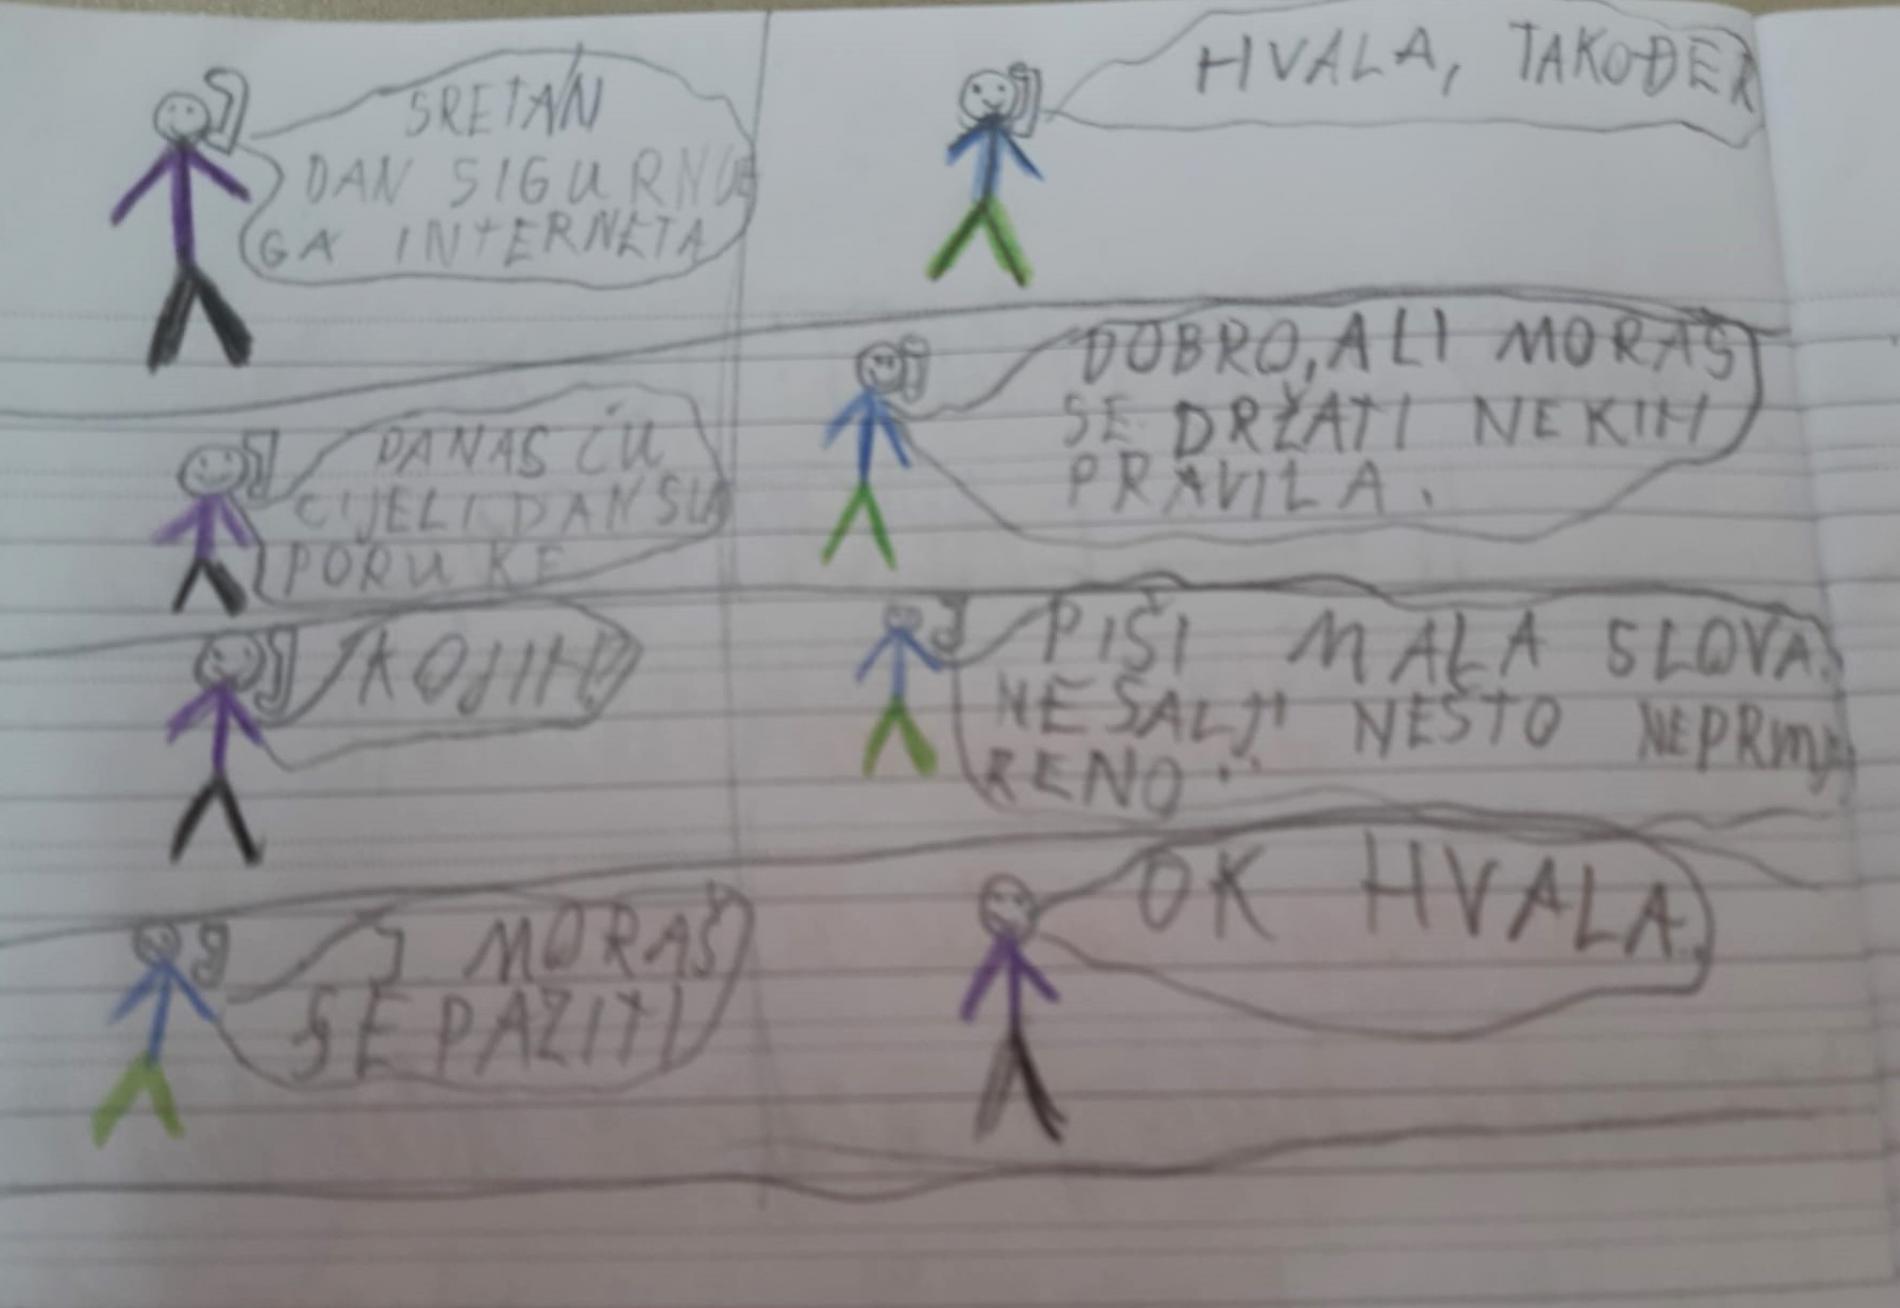 SRETAN
DAN SIGURNO
GA INTERNETA
HVALA, TAKOĐER
DANAS ĆU
CIJELI DAN
PORUKE
DOBRO, ALI MORAŠ
SE DRŽATI NEKIH
PRAVILA.
KOJIH?
PIŠI MALA SLOVA.
NE ŠALJI NEŠTO NEPRIMJE
RENO.
I MORAŠ
SE PAZITI
OK HVALA.